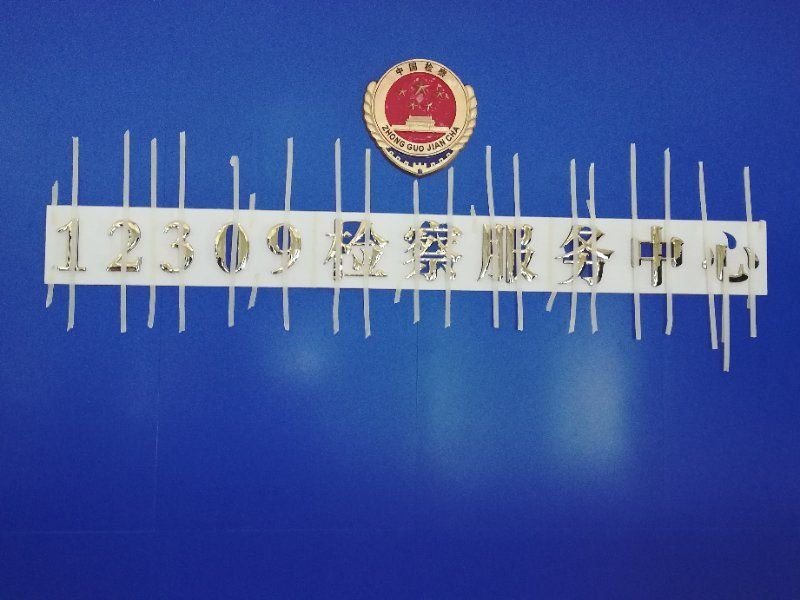 中国检察
ZHONG GUO JIAN CHA
12309检察服务中心